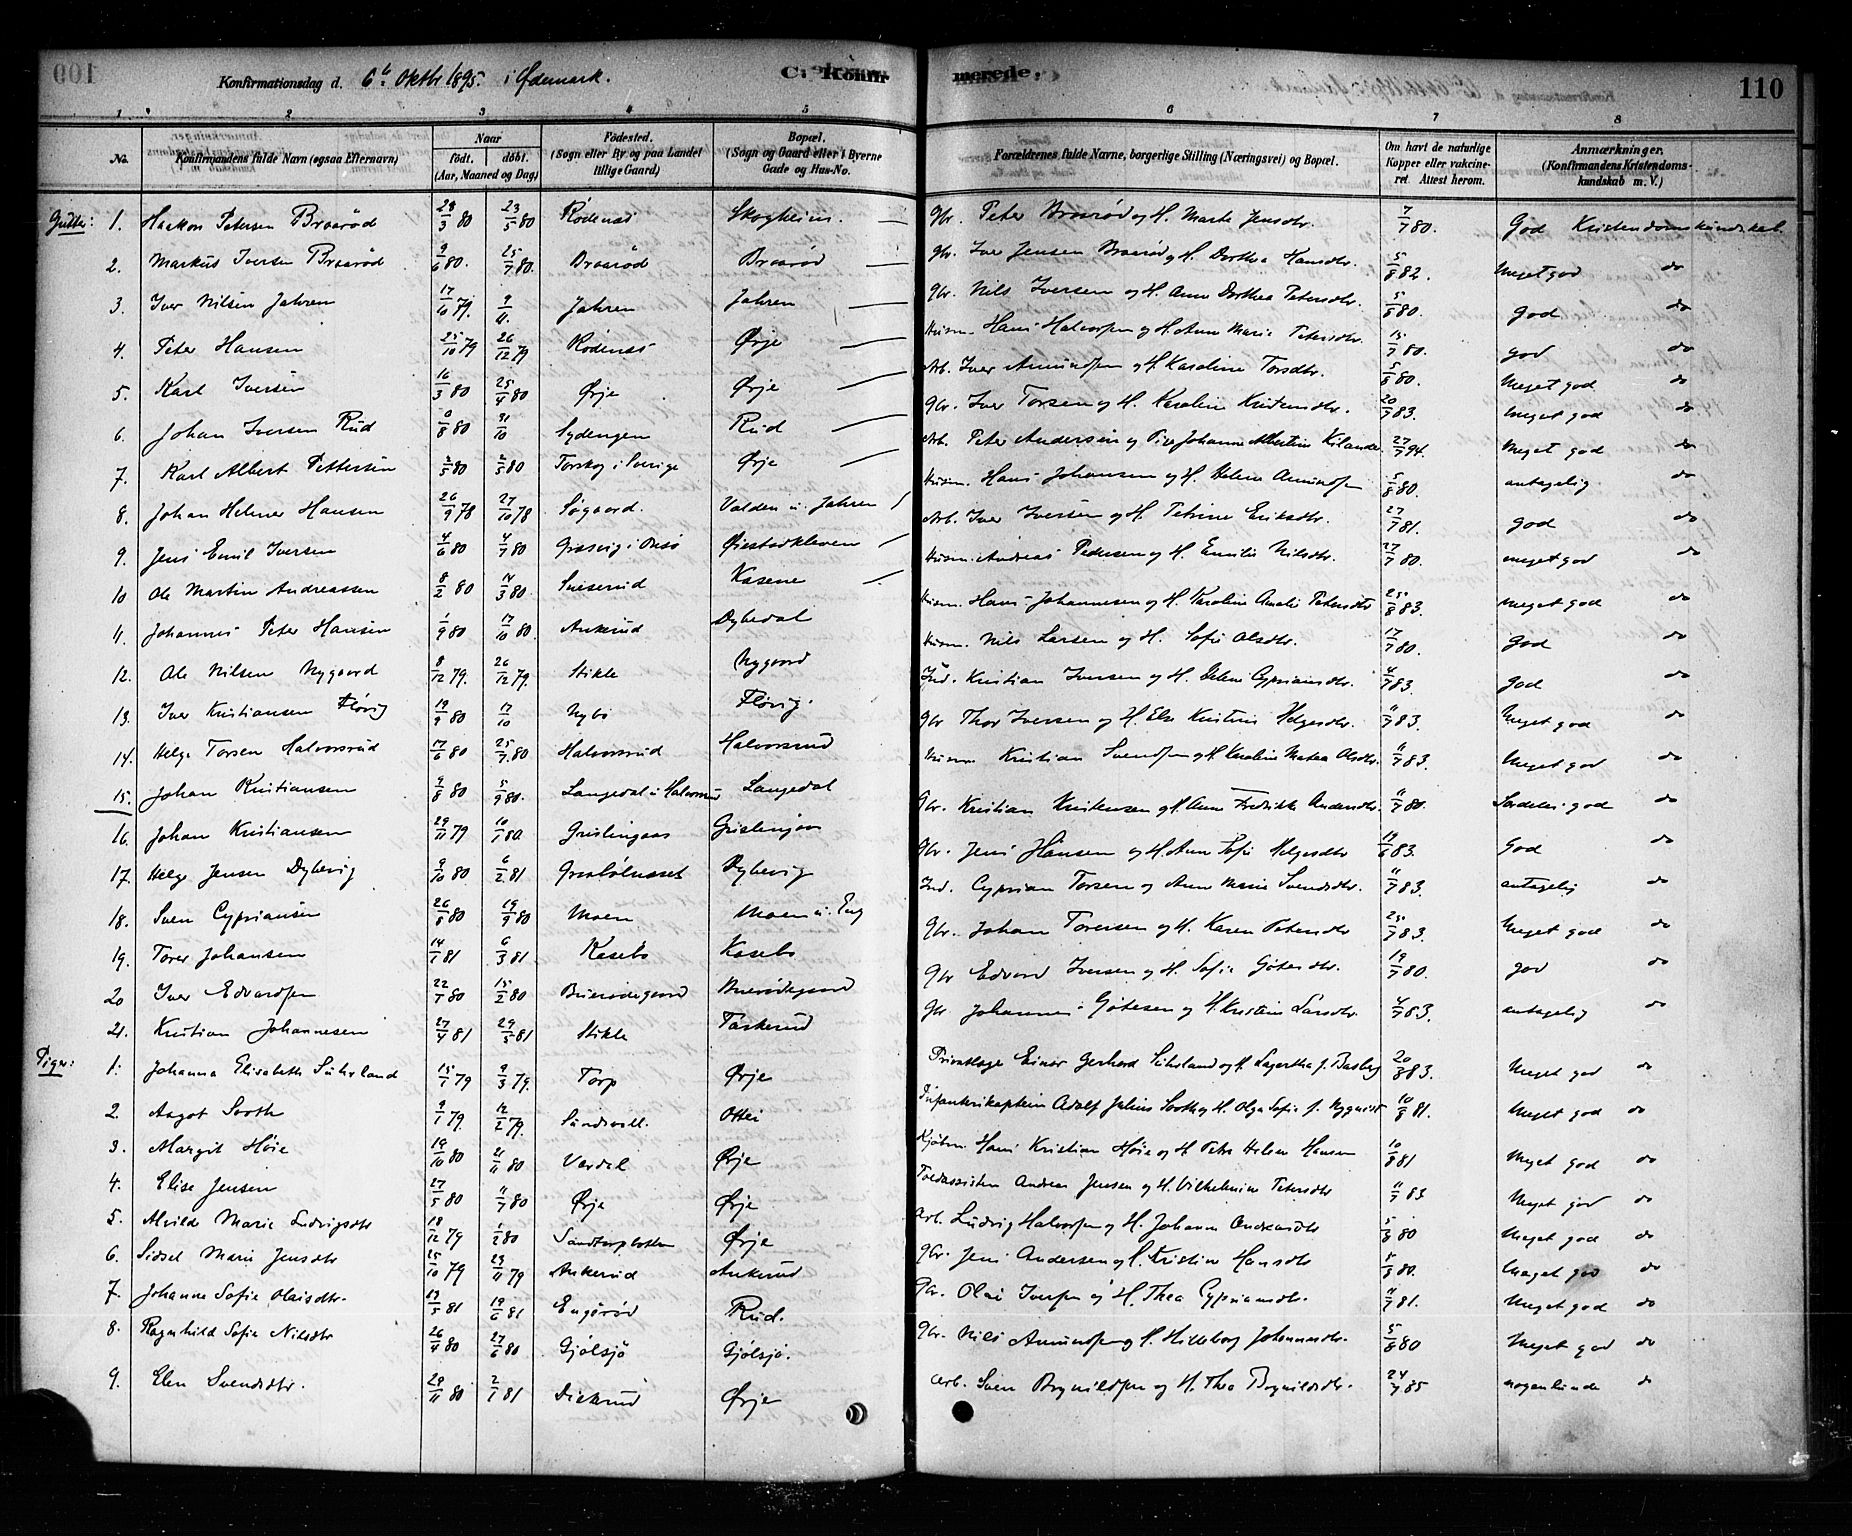 Konfirmationsdag d. 6te Oktbr 1895. i Ødemark. C. Konfirmerede. 110
1 2 3 4 5 6 7 8
No. Konfirmandens fulde Navn (ogsaa Efternavn) Naar født. døbt. (Aar, Maaned og Dag) Fødested. (Sogn eller By og paa Landet tillige Gaard) Bopæl. (Sogn og Gaard eller i Byerne Gade og Hus-No. Forældrenes fulde Navne, borgerlige Stilling (Næringsvei) og Bopæl. Om havt de naturlige Kopper eller vakcineret. Attest herom. Anmærkninger. (Konfirmandens Kristendomskundskab m. V.)
Gutter: 1. Haakon Petersen Braarød 23/5 80 Rødenæs Skogheim. Gbr. Peter Braarød og H. Marte Jensdtr. 7/7 80. God Kristendomskundskab
2. Markus Iversen Braarød 9/6 80. 25/7 80. Braarød Braarød Gbr. Iver Jensen Braarød og H. Dorthea Hansdtr. 5/8 82. Meget god do
3. Iver Nilsen Jahren 17/10 79. 9/11. Jahren Jahren Gbr. Nils Iversen og H. Anne Dorthea Petersdtr. 5/8 80. god do
4. Peter Hansen 25/10 79 26/12 79 Rødenæs Ørje Husm. Hans Halvorsen og H. Anne Marie Petersdtr. 15/7 80. god do
5. Karl Iversen 16/3 80 25/4 80 Ørje Ørje Arb. Iver Amundsen og H. Karoline Torsdtr. 5/8 80. Meget god do
6. Johan Iversen Rud 31/10 Sydengen Rud Gbr. Iver Torsen og H. Karoline Kristensdtr. 20/7 83. meget god do
7. Karl Albert Pettersen 2/5 80 Torskog i Sverige Ørje Arb. Peter Andersen og Pige Johanne Albertine Kilander 27/7 94. Meget god do
8. Johan Helmer Hansen 26/9 78 27/10 78 Søgaard. Valden u. Jahren Husm. Hans Johansen og H. Helene Amundsen 5/8 80. antagelig do
9. Jens Emil Iversen 4/6 80 4/7 80 Græsvig i Onsø Øiestadkleven Arb. Iver Iversen og H. Petrine Eriksdtr. 27/7 81. god do
10 Ole Martin Andreassen 8/2 80 14/3 80. Kasene Husm. Andreas Pedersen og H. Emilie Nilsdtr. 27/7 80. meget god do
11. Johannes Peter Hansen 1/9 80 17/10 80. Ankerud Dybedal Husm. Hans Johannesen og H. Karoline Amalie Petersdtr 25/8 83. meget god do
12. Ole Nilsen Nygaard 8/12 79. 26/12 79. Stikle Nygaard Husm. Nils Larsen og H. Sofie Olsdtr. 17/7 80. God do
13. Iver Kristiansen Fløvig 19/9 80 17/10 Nybø Fløvig. Ind. Kristian Iversen og H. Helene Cypriansdtr. 4/7 83. god do
14. Helge Torsen Halvorsrud 17/6 80 25/7 80 Halvorsrud Halvorsrud Gbr Thor Iversen og H. Else Kristine Helgesdtr. 11/7 83. Meget god do
15. Johan Kristiansen 9/8 80 5/9 80. Langedal u. Halvorsrud Langedal Husm Kristian Svendsen og H. Karoline Mathea Olsdtr. 11/7 83. Meget god do
16. Johan Kristiansen 29/11 79 10/1 80 Grislingaas Grislingaas Gbr. Kristian Kristensen og H. Anne Fredrikke Andersdtr. 11/7 80. Særdeles god do
17. Helge Jensen Dybevig 9/10 80 6/2 81 Græsbølnæsset Dybevig Gbr. Jens Hansen og H. Ann Sofie Helgesdtr 19/6 83. God do
18. Sven Cypriansen 26/8 80 19/9 80 Moen Moen u. Eng Ind. Cyprian Torsen og Ann Marie Svendsdtr. 11/7 83. antagelig do
19. Torer Johansen 14/1 81 6/3 81 Kasebo Kasebo Gbr. Johan Torersen og H. Karen Petersdtr 25/7 83. Meget god do
20 Iver Edvardsen 22/1 80 15/2 80 Buerødegaard Buerødegaard Gbr Edvard Iversen og H. Sofie Gjøtersdtr. 19/7 80. god do
21. Kristian Johannesen 27/4 81 29/5 81 Stikle Taskerud Gbr Johannes Gøtesen og H. Kristine Larsdtr. 4/7 83. antagelig do
Piger: 1. Johanna Elisabeth Suhrland 15/1 79 9/3 79. Torp Ørje Privatlæge Einar Gerhard Suhrland og H. Lagertha f. Basberg 20/8 83. Meget god do
2. Aagot Sooth 9/1 79. 12/2 79. Sundsvall. Ottei Infanterikaptein Adolf Julius Sooth og H. Olga Sofie f. Nyquist 10/8 81. Meget god do
3. Margit Høie 19/10 80 21/11 80 Værdal Ørje Kjøbm. Hans Kristian Høie og H. Petra Helene Hansen 10/8 81 Meget god do
4. Elise Jensen 27/5 80 11/7 80 Ørje Ørje Toldassistent Andreas Jensen og H. Vilhelmine Petersdtr 11/7 83 Meget god do
5. Alvilde Marie Ludvigsdtr 18/12 79 1/2 80 Sandtorpbotten Ørje Arb. Ludvig Halvorsen og H. Johanne Andreasdtr 5/8 80 Meget god do
6. Sidsel Marie Jensdtr 25/10 79 23/11 79 Ankerud Ankerud Gbr. Jens Andersen og H. Kristine Hansdtr 5/8 80. Meget god do
7. Johanne Sofie Olaisdtr. 13/5 81 19/6 81 Engerød Rud. Gbr. Olai Iversen og H. Thea Cypriansdtr. 11/7 81. Meget god do
8. Ragnhild Sofie Nilsdtr 26/4 80 27/6 80 Gjølsjø Gjølsjø. Gbr. Nils Amundsen og H. Hildeborg Johannesdtr. 5/8 80 Meget god do
9. Elen Svendsdtr. 29/11 80 2/1 81 Dickerud Ørje Arb. Sven Brynildsen og H. Thea Brynildsdtr. 24/7 85 nogenlunde do